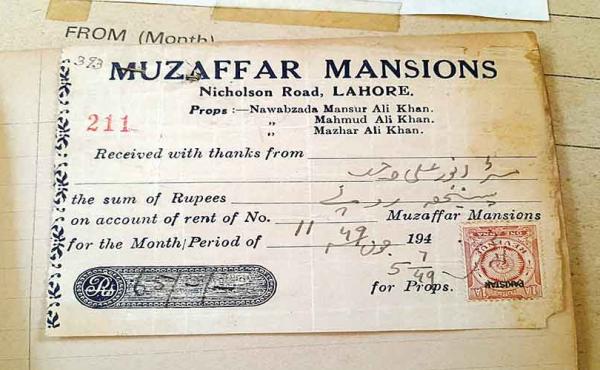 FROM (Month)
393
MUZAFFAR MANSIONS
Nicholson Road, LAHORE.
Props :— Nawabzada Mansur Ali Khan.
„ Mahmud Ali Khan.
„ Mazhar Ali Khan.
211
Received with thanks from
مسٹر انور علی صاحب
the sum of Rupees پینسٹھ روپے
on account of rent of No. 7 Muzaffar Mansions
for the Month/Period of 11 جون 49 194
Rs. 65/-/-
for Props.
PAKISTAN